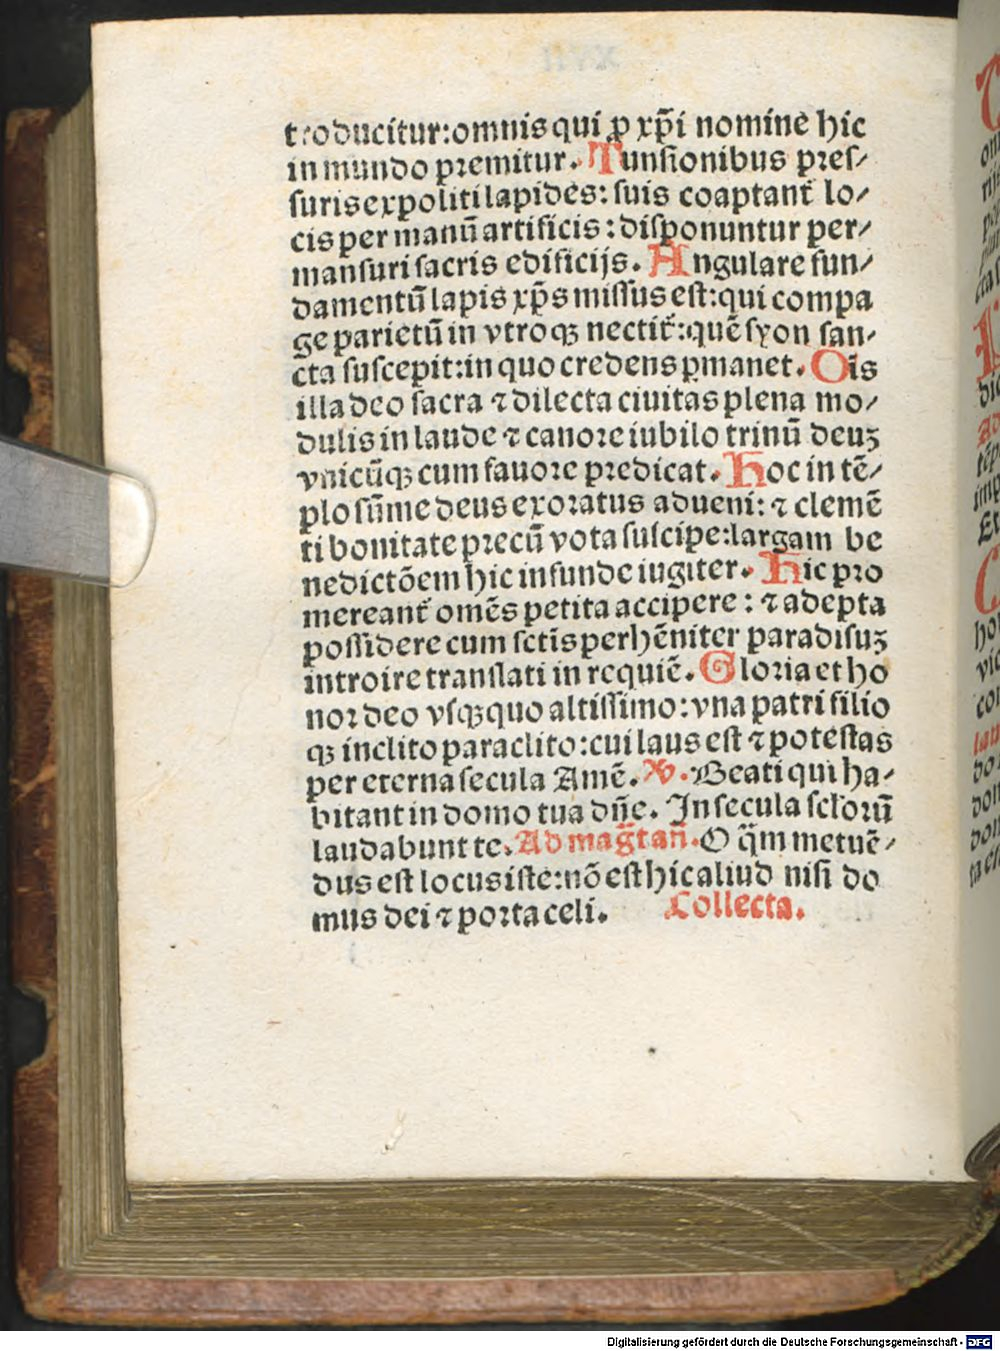 troducitur:omnis qui ꝓ xp̄i nomine hic
in mundo premitur. Tunsionibus pres⸗
suris expoliti lapides: suis coaptant᷑ lo⸗
cis per manū artificis: disponuntur per⸗
mansuri sacris edificijs. Angulare fun⸗
damentū lapis xp̄s missus est:qui compa
ge parietū in vtroqꝫ nectit᷑:quē syon san⸗
cta suscepit:in quo credens ꝑmanet. Oīs
illa deo sacra ⁊ dilecta ciuitas plena mo⸗
dulis in laude ⁊ canore iubilo trinū deuꝫ
vnicūqꝫ cum fauore predicat. Hoc in tē⸗
plo sūme deus exoratus adueni: ⁊ clemē
ti bonitate precū vota suscipe:largam be
nedictōem hic infunde iugiter. Hic pro
mereant᷑ omēs petita accipere: ⁊ adepta
possidere cum sctīs perhēniter paradisuꝫ
introire translati in requiē. Gloria et ho
nor deo vsqꝫquo altissimo:vna patri filio
qꝫ inclito paraclito:cui laus est ⁊ potestas
per eterna secula Amē. xv. Beati qui ha⸗
bitant in domo tua dn̄e. In secula scl'orū
laudabunt te. Ad mag̅tan̄. O q̄m metuē⸗
dus est locus iste:nō est hic aliud nisi do
mus dei ⁊ porta celi. Collecta.
Digitalisierung gefördert durch die Deutsche Forschungsgemeinschaft - DFG